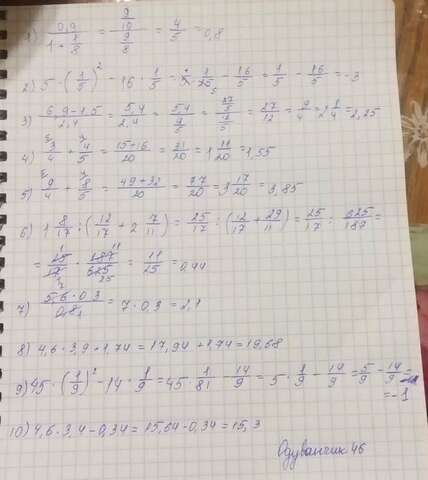 1) 0,9 / (1 + 1/8) = (9/10) / (9/8) = 4/5 = 0,8
2) 5 · (1/5)² - 16 · 1/5 = 5 · 1/25 - 16/5 = 1/5 - 16/5 = -3
3) 6,9 - 1,5 / 2,4 = 5,4 / 2,4 = = 27/12 = 9/4 = 2 1/4 = 2,25
4) 3/4 + 4/5 = 15+16 / 20 = 31/20 = 1 11/20 = 1,55
5) 9/4 + 8/5 = 32 / 20 = 77/20 = 3 17/20 = 3,85
6) 1 8/17 : (12/17 + 2 7/11) = 25/17 : (12/17 + 29/11) = 25/17 : 625/187 =
= 25/17 · 187/625 = 11/25 = 0,44
7) 5,6 · 0,3 / 0,8 = 7 · 0,3 = 2,1
8) 4,6 · 3,9 + 1,74 = 17,94 + 1,74 = 19,68
9) 45 · (1/9)² - 14 · 1/9 = 45 · 1/81 - 14/9 = 5 · 1/9 - 14/9 = 5/9 - 14/9 =
= -1
10) 4,6 · 3,4 - 0,34 = 15,64 - 0,34 = 15,3
Одуванчик 46